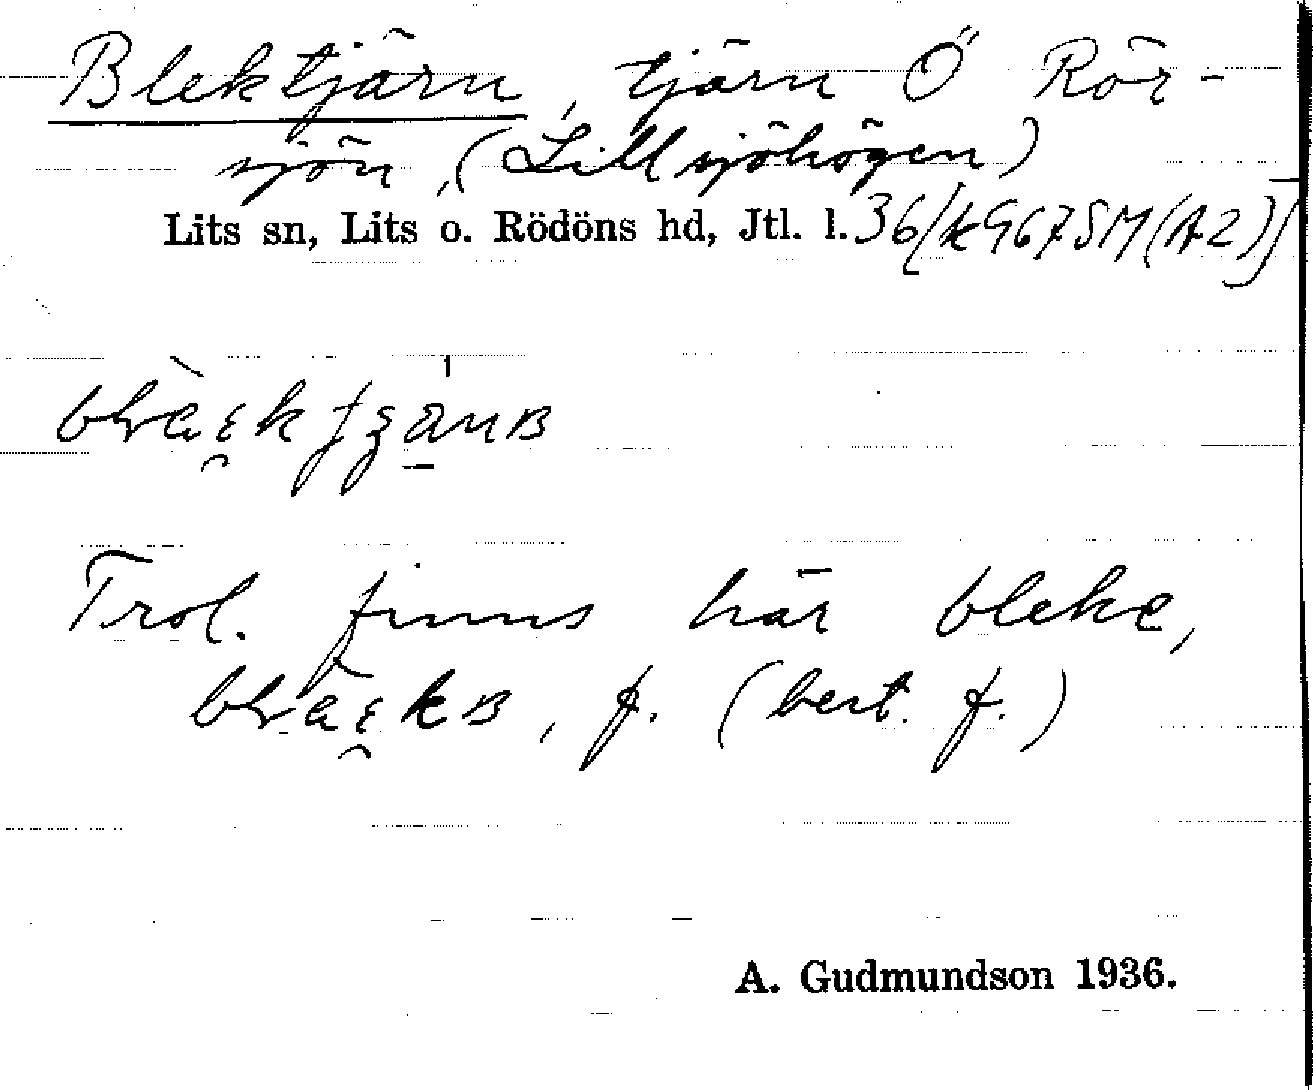 Blektjärn, tjärn Ö Rör-
sjön, (Lillsjöhögen)
Lits sn, Lits o. Rödöns hd, Jtl. l. 36[k967SM(A2)]
Trol. finns här bleke,
f. (best. f.)
A. Gudmundson 1936.